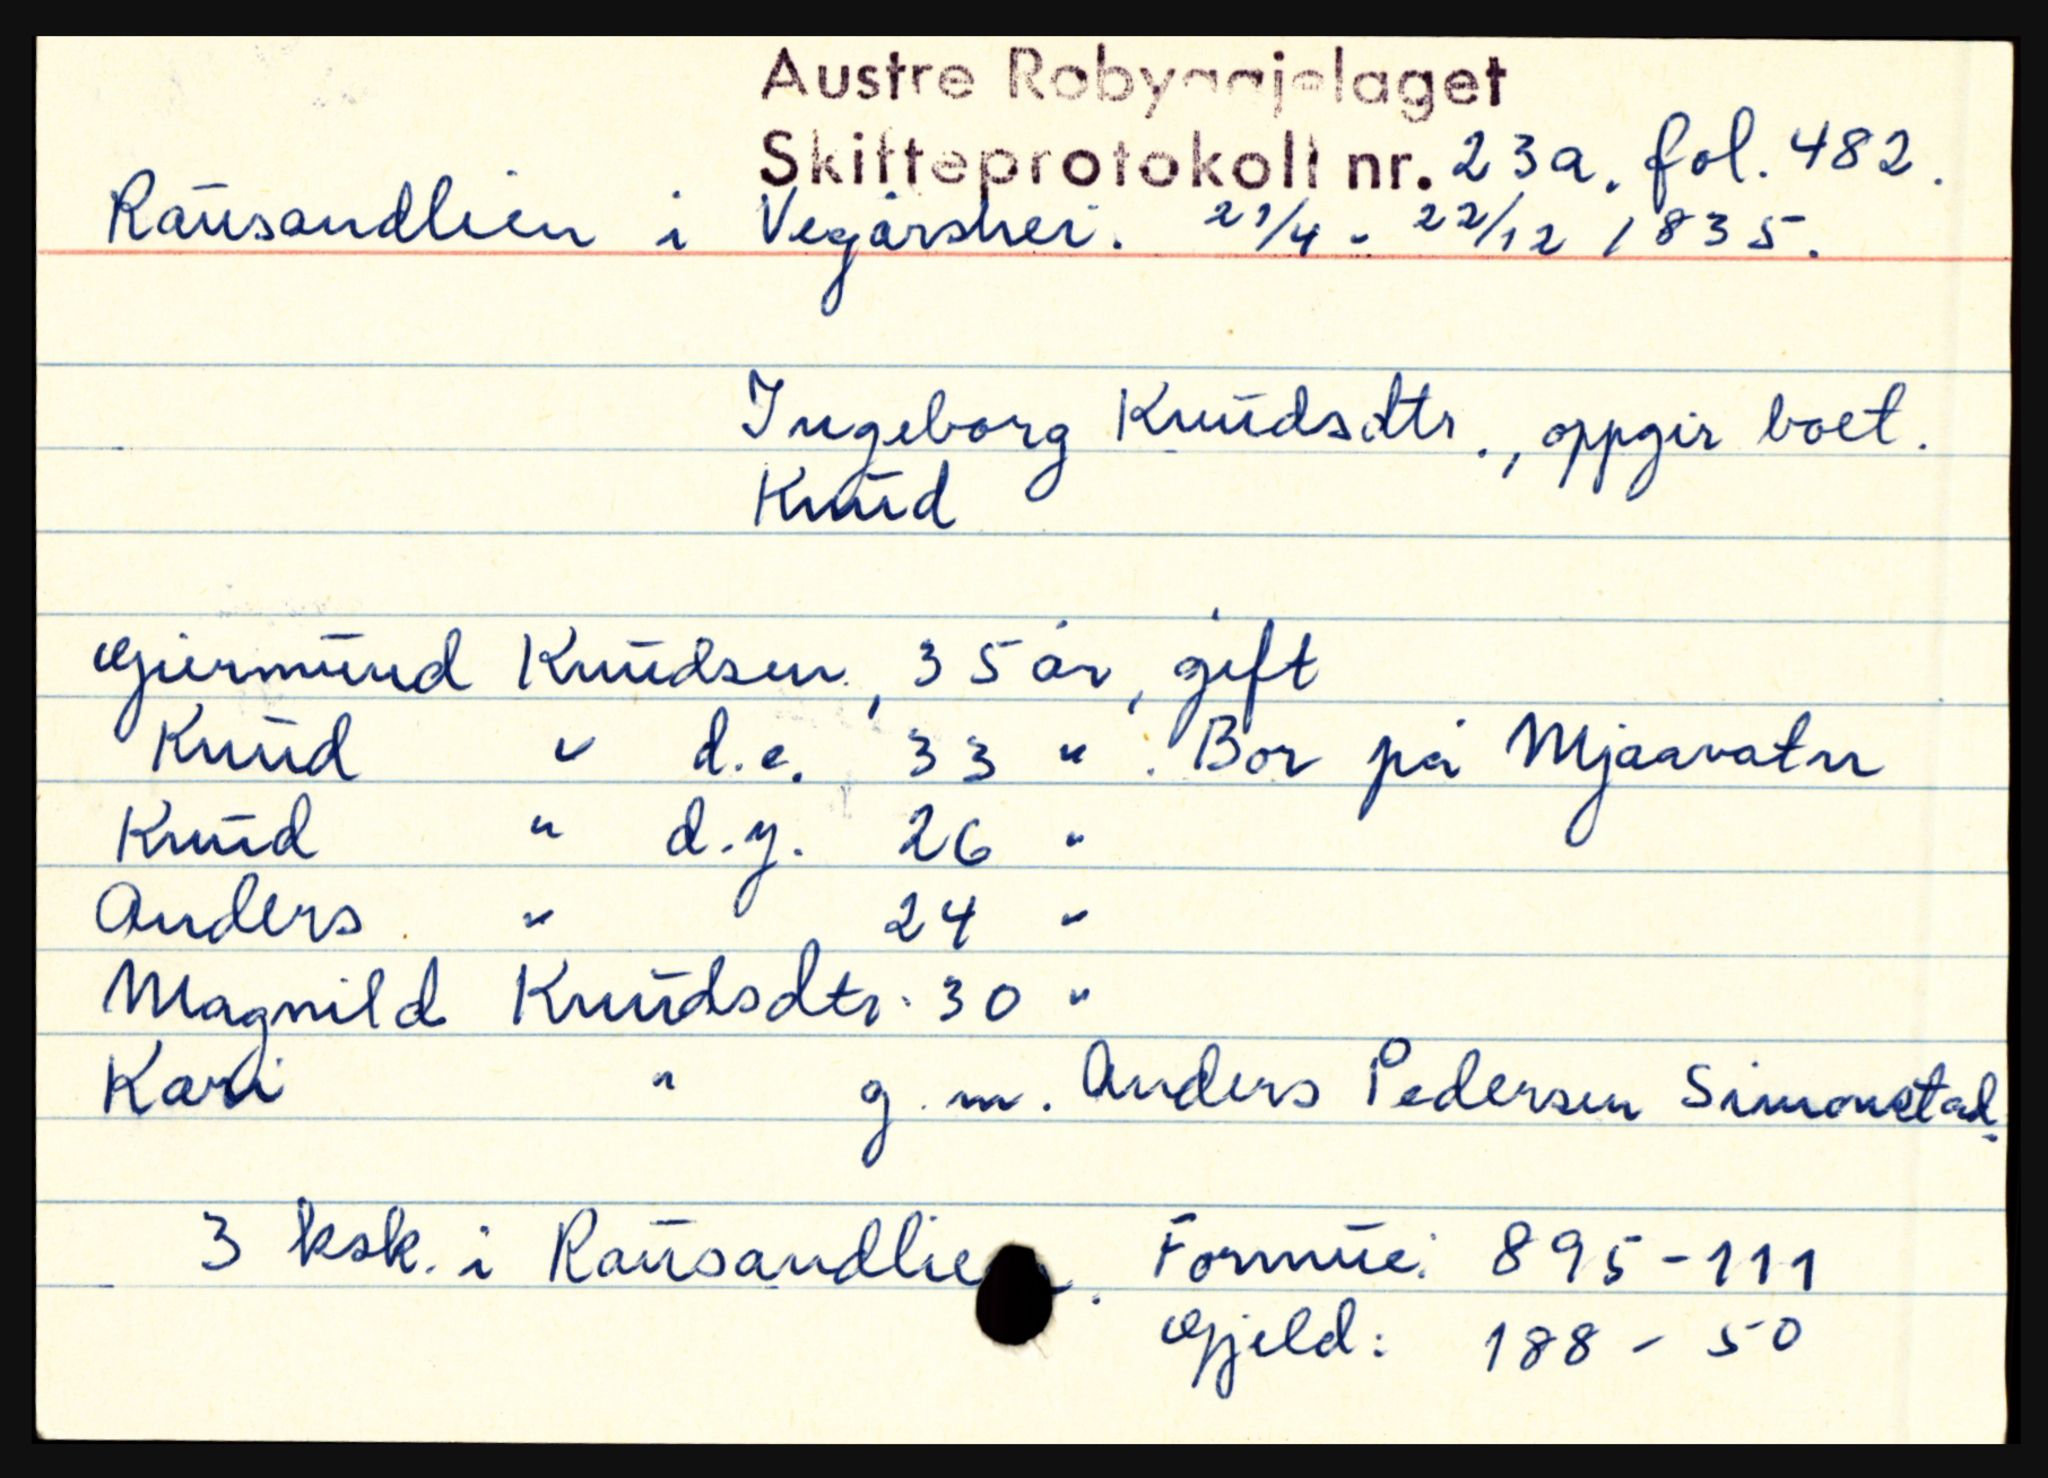 Austre Robyggjelaget
Skifteprotokoll nr. 23a. fol. 482.
Rausandlien i Vegårshei. 21/4 - 22/12 1835.
Ingeborg Knudsdtr., oppgir boet.
Knud
Gjermund Knudsen, 35 år, gift
Knud " d.e. 33 ". Bor på Mjaavatn
Knud " d.y. 26 "
Anders " 24 "
Magnild Knudsdtr. 30 "
Kari " g.m. Anders Pedersen Simonstad.
3 ksk. i Rausandlien. Formue: 895-111
Gjeld: 188-50